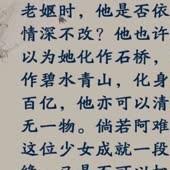 老妪时，他是否依
情深不改？他也许
以为她化作石桥，
作碧水青山，化身
百亿，他亦可以清
无一物。倘若阿难
这位少女成就一段